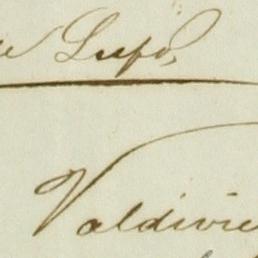 Lupo,
Valdivie